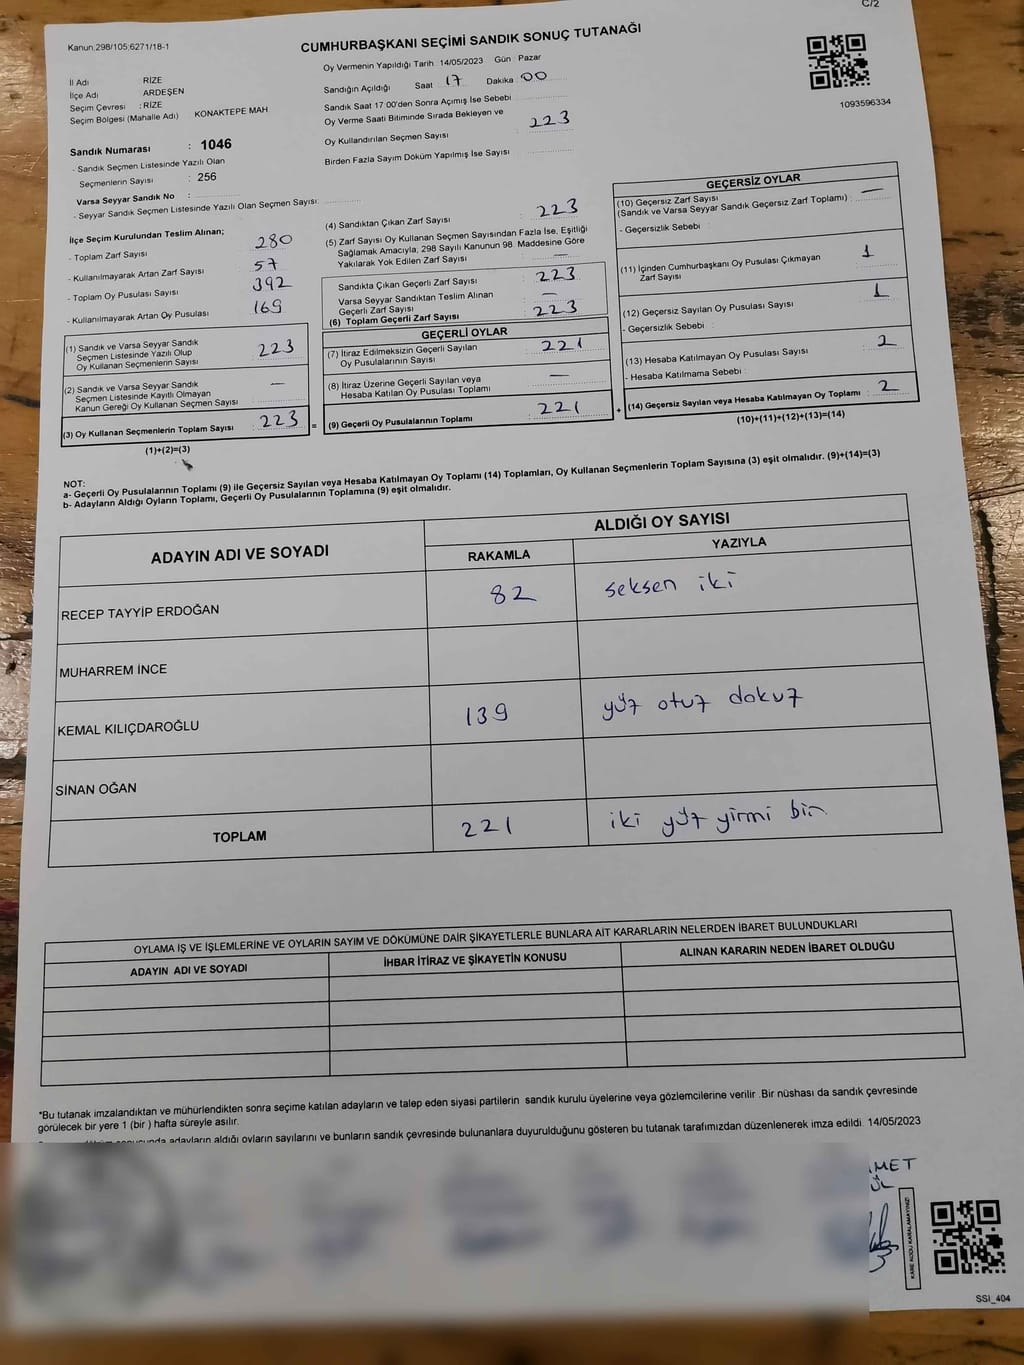 C/2
Kanun,298/105;6271/18-1
CUMHURBAŞKANI SEÇİMİ SANDIK SONUÇ TUTANAĞI
Oy Vermenin Yapıldığı Tarih 14/05/2023 Gün : Pazar
İl Adı RİZE
İlçe Adı ARDEŞEN
Seçim Çevresi : RİZE
Seçim Bölgesi (Mahalle Adı) KONAKTEPE MAH
Sandığın Açıldığı Saat : 17 Dakika : 00
Sandık Saat 17:00'den Sonra Açımış İse Sebebi
Oy Verme Saati Bitiminde Sırada Bekleyen ve
Oy Kullandırılan Seçmen Sayısı : 223
Birden Fazla Sayım Döküm Yapılmış İse Sayısı
1093596334
Sandık Numarası : 1046
- Sandık Seçmen Listesinde Yazılı Olan
Seçmenlerin Sayısı : 256
Varsa Seyyar Sandık No :
- Seyyar Sandık Seçmen Listesinde Yazılı Olan Seçmen Sayısı:
İlçe Seçim Kurulundan Teslim Alınan;
- Toplam Zarf Sayısı : 280
- Kullanılmayarak Artan Zarf Sayısı : 57
- Toplam Oy Pusulası Sayısı : 392
- Kullanılmayarak Artan Oy Pusulası : 169
(1) Sandık ve Varsa Seyyar Sandık
Seçmen Listesinde Yazılı Olup
Oy Kullanan Seçmenlerin Sayısı : 223
(2) Sandık ve Varsa Seyyar Sandık
Seçmen Listesinde Kayıtlı Olmayan
Kanun Gereği Oy Kullanan Seçmen Sayısı : —
(3) Oy Kullanan Seçmenlerin Toplam Sayısı : 223 =
(1)+(2)=(3)
(4) Sandıktan Çıkan Zarf Sayısı : 223
(5) Zarf Sayısı Oy Kullanan Seçmen Sayısından Fazla İse, Eşitliği
Sağlamak Amacıyla, 298 Sayılı Kanunun 98. Maddesine Göre
Yakılarak Yok Edilen Zarf Sayısı : —
Sandıkta Çıkan Geçerli Zarf Sayısı : 223
Varsa Seyyar Sandıktan Teslim Alınan
Geçerli Zarf Sayısı : —
(6) Toplam Geçerli Zarf Sayısı : 223
GEÇERLİ OYLAR
(7) İtiraz Edilmeksizin Geçerli Sayılan
Oy Pusulalarının Sayısı : 221
(8) İtiraz Üzerine Geçerli Sayılan veya
Hesaba Katılan Oy Pusulası Toplamı : —
(9) Geçerli Oy Pusulalarının Toplamı : 221 +
GEÇERSİZ OYLAR
(10) Geçersiz Zarf Sayısı
(Sandık ve Varsa Seyyar Sandık Geçersiz Zarf Toplamı) : —
- Geçersizlik Sebebi :
(11) İçinden Cumhurbaşkanı Oy Pusulası Çıkmayan
Zarf Sayısı : 1
(12) Geçersiz Sayılan Oy Pusulası Sayısı : 1
- Geçersizlik Sebebi :
(13) Hesaba Katılmayan Oy Pusulası Sayısı : 2
- Hesaba Katılmama Sebebi :
(14) Geçersiz Sayılan veya Hesaba Katılmayan Oy Toplamı : 2
(10)+(11)+(12)+(13)=(14)
NOT:
a- Geçerli Oy Pusulalarının Toplamı (9) ile Geçersiz Sayılan veya Hesaba Katılmayan Oy Toplamı (14) Toplamları, Oy Kullanan Seçmenlerin Toplam Sayısına (3) eşit olmalıdır. (9)+(14)=(3)
b- Adayların Aldığı Oyların Toplamı, Geçerli Oy Pusulalarının Toplamına (9) eşit olmalıdır.
ADAYIN ADI VE SOYADI
ALDIĞI OY SAYISI
RAKAMLA YAZIYLA
RECEP TAYYİP ERDOĞAN 82 seksen iki
MUHARREM İNCE
KEMAL KILIÇDAROĞLU 139 yüz otuz dokuz
SİNAN OĞAN
TOPLAM 221 iki yüz yirmi bin
OYLAMA İŞ VE İŞLEMLERİNE VE OYLARIN SAYIM VE DÖKÜMÜNE DAİR ŞİKAYETLERLE BUNLARA AİT KARARLARIN NELERDEN İBARET BULUNDUKLARI
ADAYIN ADI VE SOYADI İHBAR İTİRAZ VE ŞİKAYETİN KONUSU ALINAN KARARIN NEDEN İBARET OLDUĞU
*Bu tutanak imzalandıktan ve mühürlendikten sonra seçime katılan adayların ve talep eden siyasi partilerin sandık kurulu üyelerine veya gözlemcilerine verilir .Bir nüshası da sandık çevresinde
görülecek bir yere 1 (bir ) hafta süreyle asılır.
adayların aldığı oyların sayılarını ve bunların sandık çevresinde bulunanlara duyurulduğunu gösteren bu tutanak tarafımızdan düzenlenerek imza edildi. 14/05/2023
KARE KODU KARALAMAYINIZ!
SSİ_404